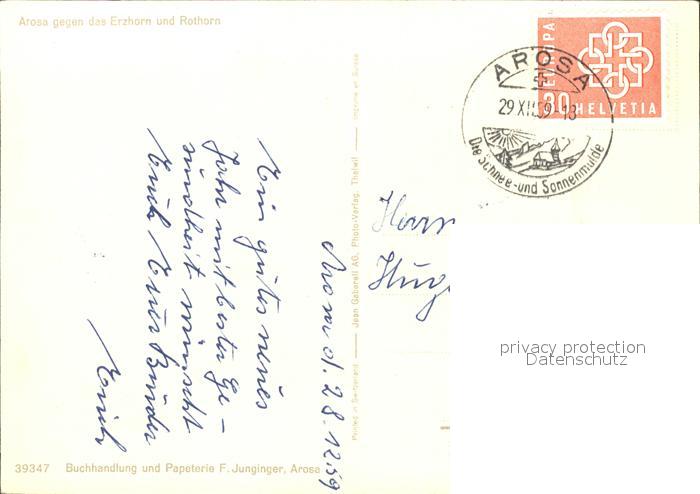 Arosa gegen das Erzhorn und Rothorn
EUROPA
30 HELVETIA
AROSA
29.XII.59-18
Die Schnee- und Sonnenmulde
Arosa d. 28.12.59
Ein gutes neues
Jahr mit bester Ge-
sundheit wünscht
Euch Euer Bruder
Printed in Switzerland
Jean Gaberell AG. Photo-Verlag, Thalwil
Imprimé en Suisse
Herrn
Hug
privacy protection
Datenschutz
39347 Buchhandlung und Papeterie F. Junginger, Arosa